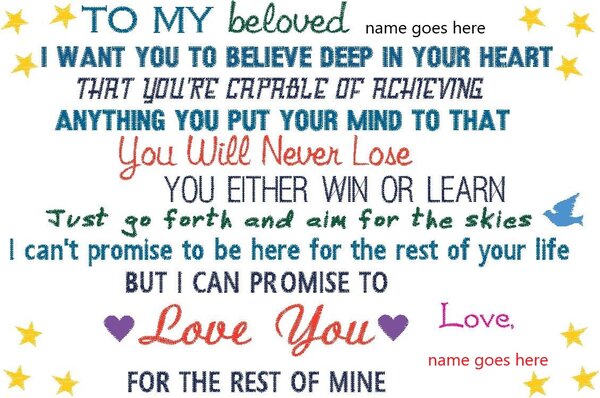 TO MY beloved name goes here
I WANT YOU TO BELIEVE DEEP IN YOUR HEART
THAT YOU'RE CAPABLE OF ACHIEVING
ANYTHING YOU PUT YOUR MIND TO THAT
You Will Never Lose
YOU EITHER WIN OR LEARN
Just go forth and aim for the skies
I can't promise to be here for the rest of your life
BUT I CAN PROMISE TO
Love You
FOR THE REST OF MINE
Love,
name goes here